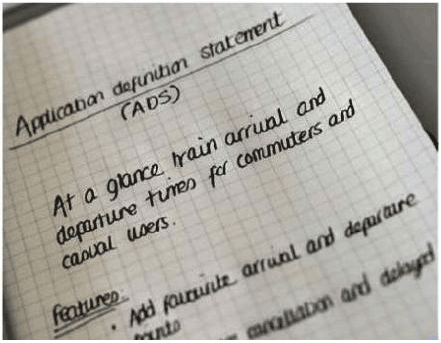 Application definition statement
(ADS)
At a glance train arrival and
departure times for commuters and
casual users.
Features:
• Add favourite arrival and departure
points
cancellation and delayed